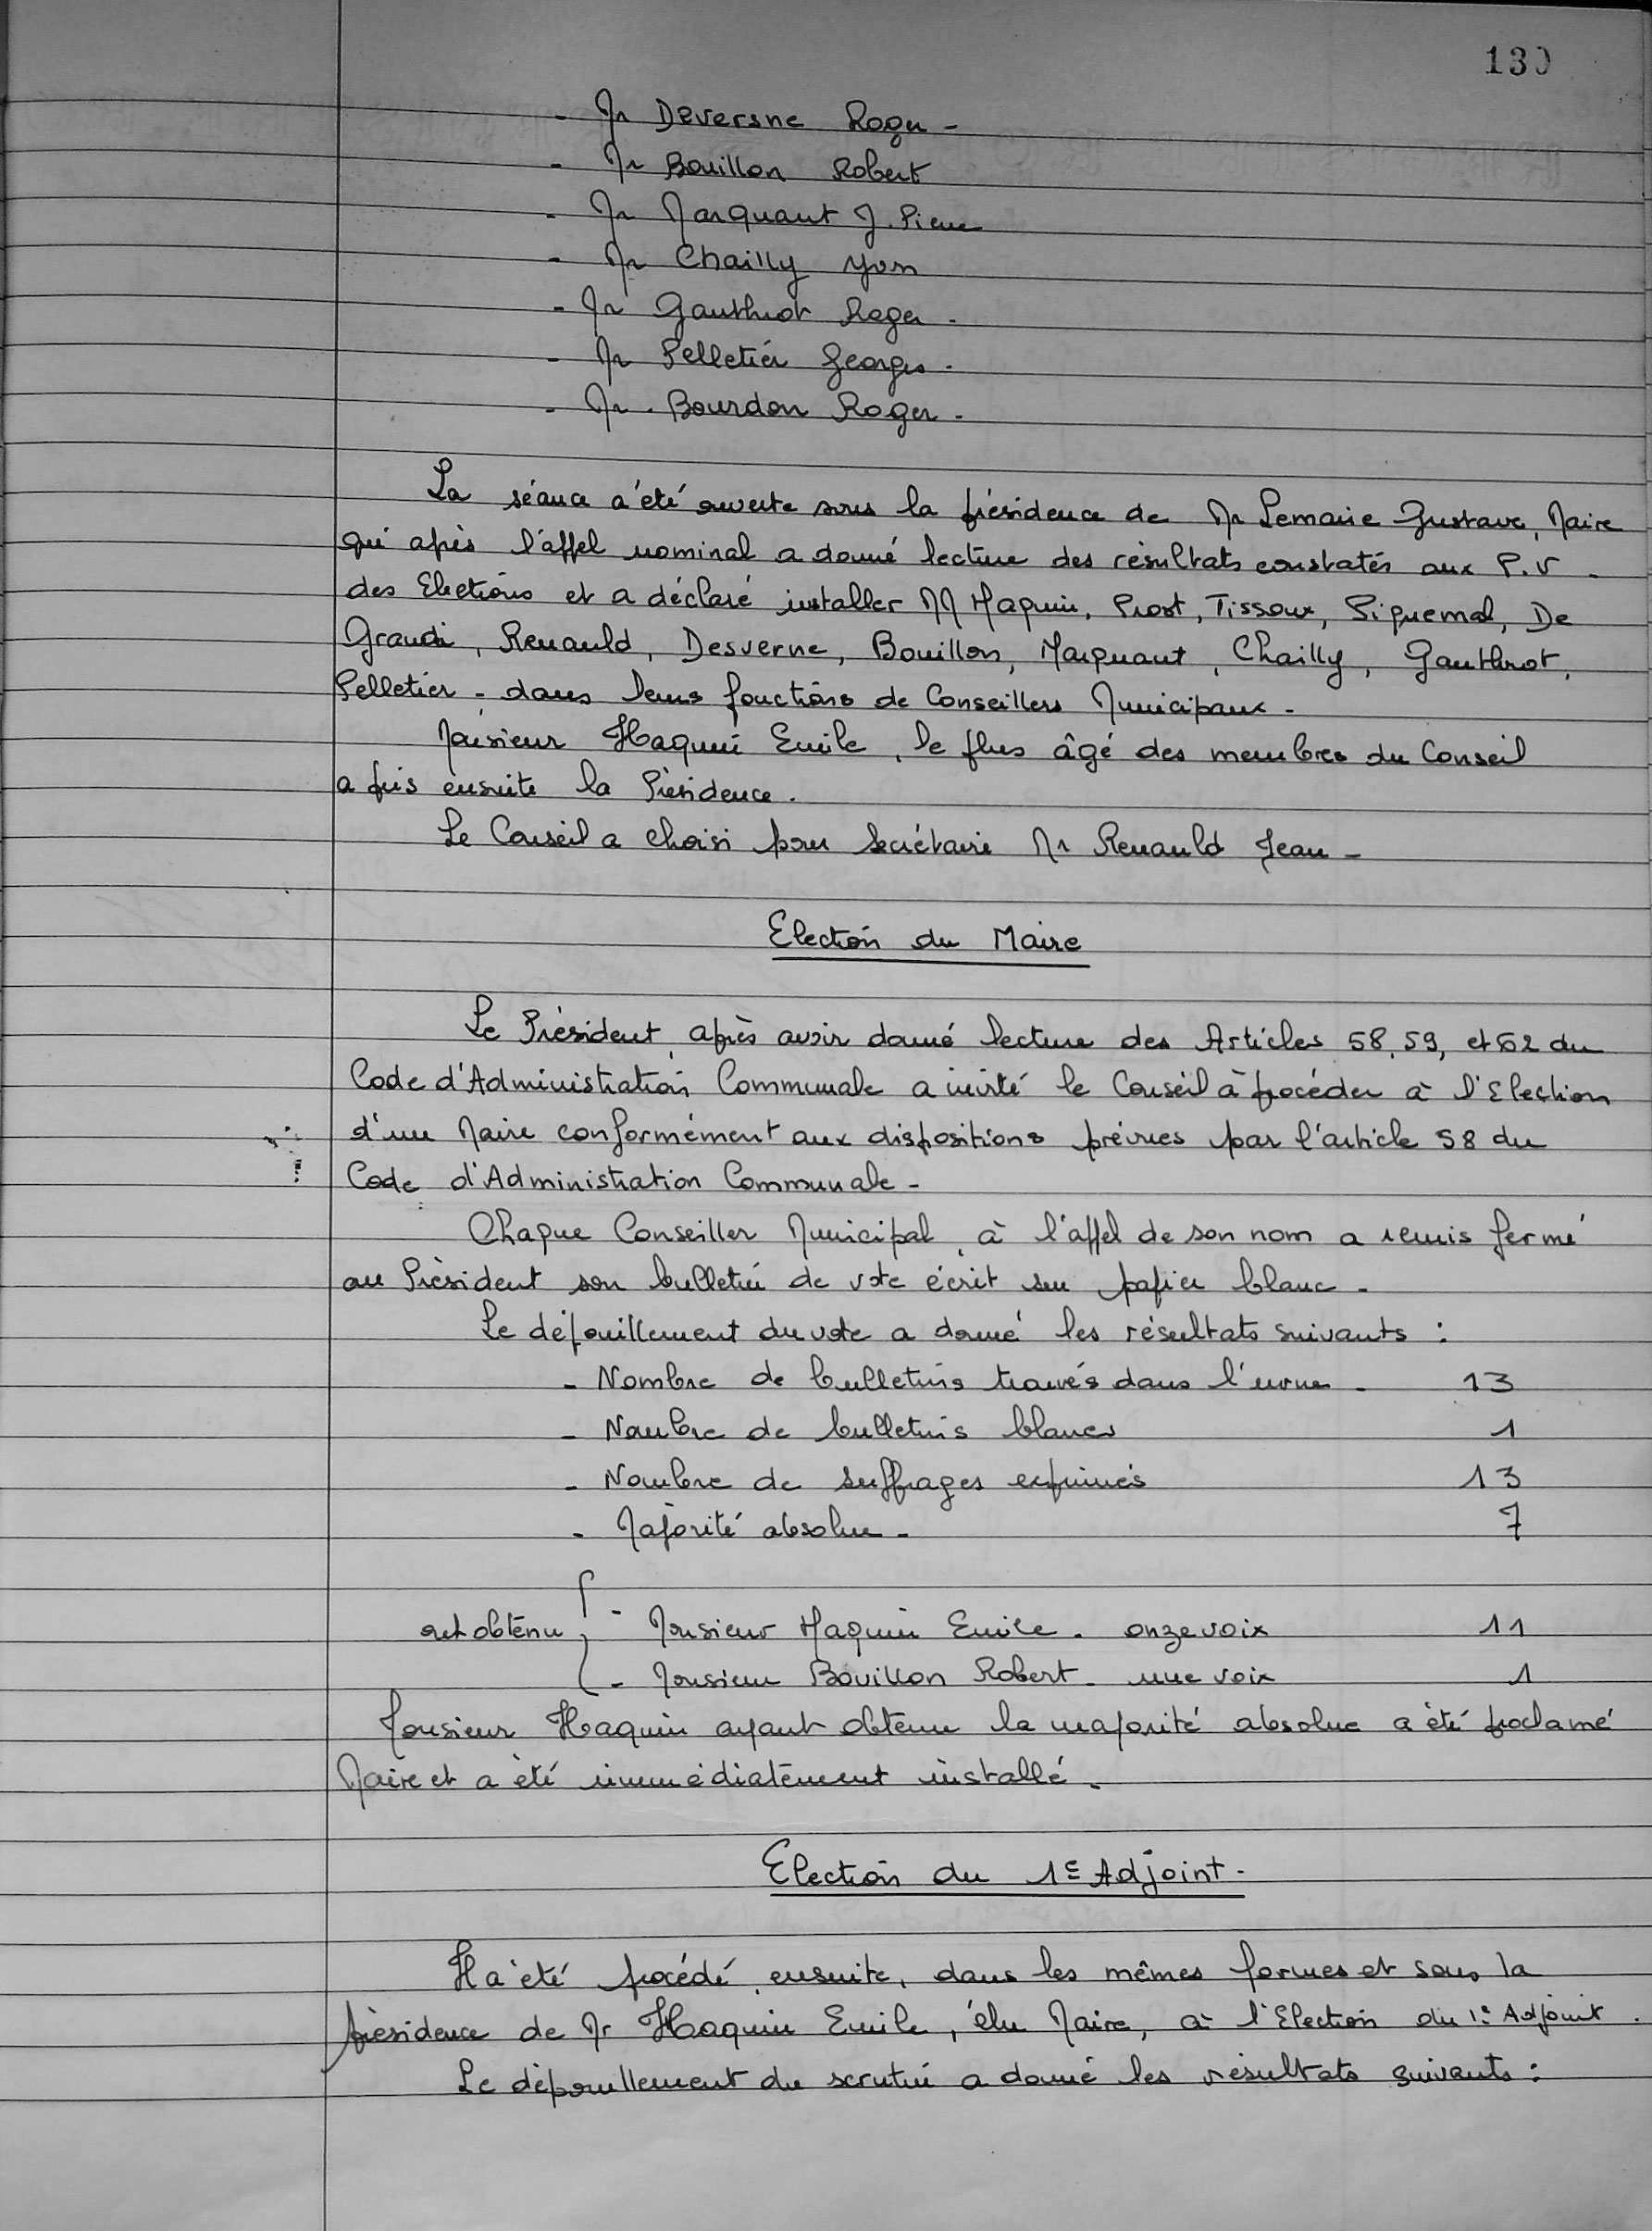 130
- Mr Deversne Roger -
- Mr Bouillon Robert
- Mr Marquant J. Pierre
- Mr Chailly Yvon
- Mr Gauthrot Roger -
- Mr Pelletier Georges -
- Mr. Bourdon Roger -
La séance a été ouverte sous la présidence de Mr Lemaire Gustave, Maire
qui après l'appel nominal a donné lecture des résultats constatés aux P.V -
des Elections et a déclaré installer MM Haquin, Prost, Tissoux, Piquemal, De
Grandi, Renauld, Desverne, Bouillon, Marquant, Chailly, Gauthrot,
Pelletier - dans leurs fonctions de Conseillers Municipaux -
Monsieur Haquin Emile, le plus âgé des membres du Conseil
a pris ensuite la Présidence.
Le Conseil a choisi pour Secrétaire Mr Renauld Jean -
Election du Maire
Le Président, après avoir donné lecture des Articles 58, 59, et 62 du
Code d'Administration Communale a invité le Conseil à procéder à l'Election
d'un Maire conformément aux dispositions prévues par l'article 58 du
Code d'Administration Communale -
Chaque Conseiller Municipal, à l'appel de son nom a remis fermé
au Président son bulletin de vote écrit sur papier blanc -
Le dépouillement du vote a donné les résultats suivants :
- Nombre de bulletins trouvés dans l'urne - 13
- Nombre de bulletins blancs 1
- Nombre de suffrages exprimés 13
- Majorité absolue - 7
ont obtenu { - Monsieur Haquin Emile - onze voix 11
- Monsieur Bouillon Robert - une voix 1
Monsieur Haquin ayant obtenu la majorité absolue a été proclamé
Maire et a été immédiatement installé -
Election du 1E Adjoint -
Il a été procédé ensuite, dans les mêmes formes et sous la
présidence de Mr Haquin Emile, élu Maire, à l'Election du 1e Adjoint.
Le dépouillement du scrutin a donné les résultats suivants :